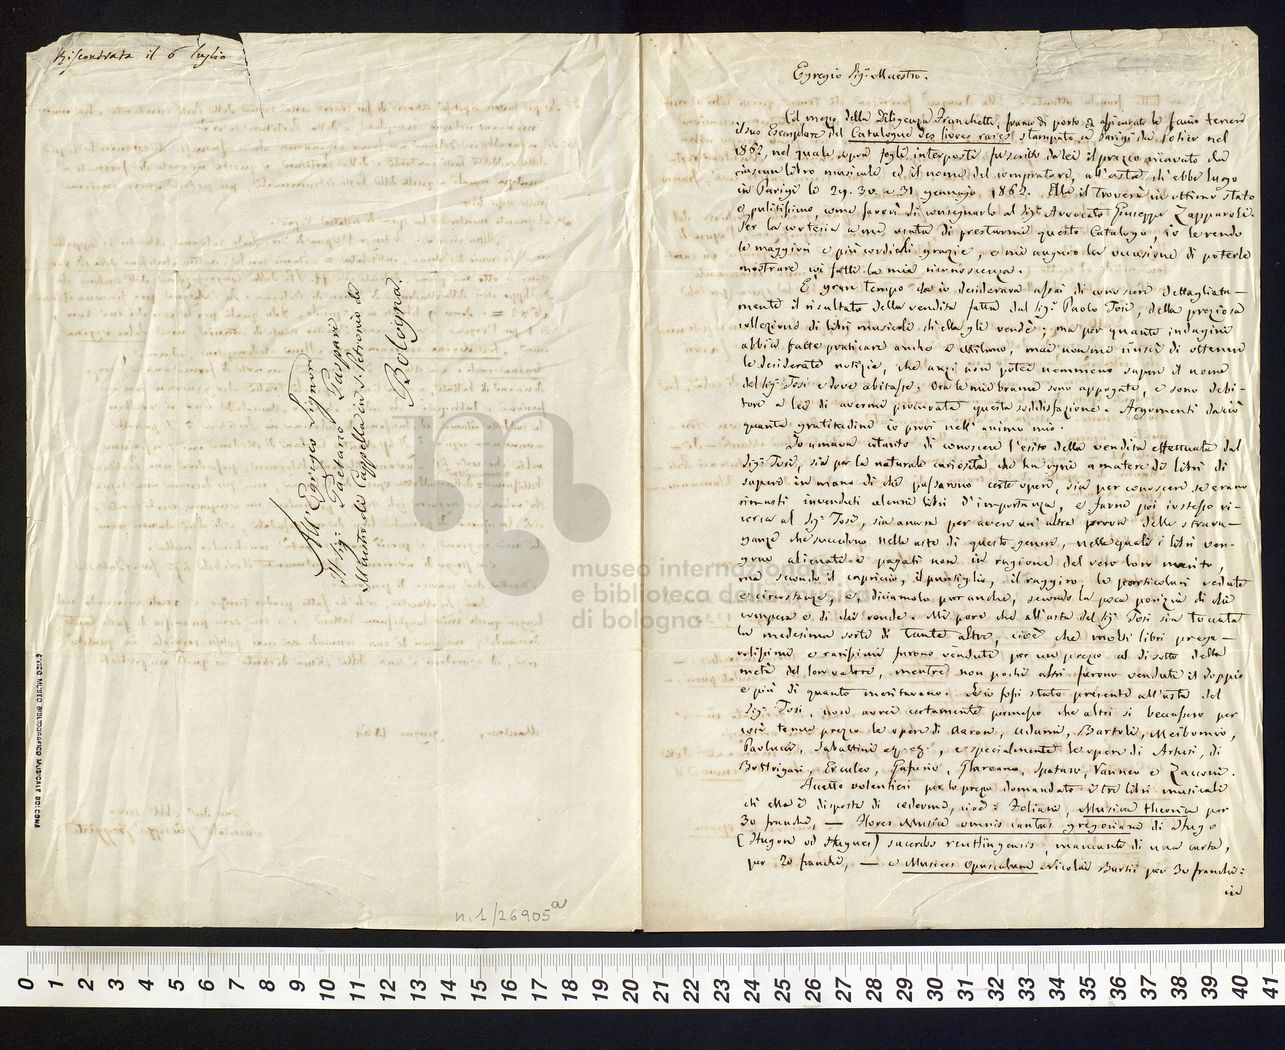 Riscontrata il 6 luglio
All' Egregio Signore
Il Sig.r Gaetano Gaspari
Maestro di Cappella in S. Petronio di
Bologna.
n. 1/26905 a
CIVICO MUSEO BIBLIOGRAFICO MUSICALE BOLOGNA
Egregio Sig.r Maestro.
Col mezzo della Diligenza Franchetti, franco di porto ed assicurato le farò tenere
il suo Esemplare del Catalogue des livres rares stampato a Parigi da Potier nel
1862, nel quale sopra fogli interposti fu scritto da lei il prezzo ricavato da
ciascun libro musicale ed il nome del compratore, all'asta ch'ebbe luogo
in Parigi li 29. 30. e 31 gennajo 1862. Ella il troverà in ottimo stato
e pulitissimo, come favorì di consegnarlo al Sig.r Avvocato Giuseppe Zapparoli.
Per la cortesia a me usata di prestarmi questo Catalogo, io le rendo
le maggiori e più cordiali grazie, e mi auguro la occasione di poterle
mostrare coi fatti la mia riconoscenza.
È gran tempo da io desiderava assai di conoscere dettagliata-
mente il risultato della vendita fatta dal Sig.r Paolo Tosi, della preziosa
collezione di libri musicali ch'ella gli vendè; ma per quante indagini
abbia fatte praticare anche a Milano, mai non mi riuscì di ottenere
le desiderate notizie, che anzi non potei nemmeno sapere il nome
del Sig.r Tosi e dove abitasse. Ora le mie brame sono appagate, e sono debi-
tore a lei di avermi procurata questa soddisfazione. Argomenti da ciò
quanta gratitudine io provi nell'animo mio.
Io amava citanto di conoscere l'esito della vendita effettuata dal
Sig.r Tosi, sia per la naturale curiosità che ha ogni amatore di libri di
sapere in mano di chi passarono certe opere, sia per conoscere se erano
rimasti invenduti alcuni libri d'importanza, e farne poi io stesso ri-
cerca al Sig.r Tosi, sia ancora per avere un'altra prova delle strava-
ganze che succedono nelle aste di questo genere, nelle quali i libri ven-
gono alienati e pagati non in ragione del vero loro merito,
ma secondo il capriccio, il puntiglio, il raggiro, le particolari vedute
e circostanze, e, diciamolo pur anche, secondo la poca perizia di chi
compera e di chi vende. Mi pare che all'asta del Sig.r Tosi sia toccata
la medesima sorte di tante altre, cioè che molti libri prege-
volissimi e rarissimi furono venduti per un prezzo al di sotto della
metà del loro valore, mentre non pochi altri furono venduti il doppio
e più di quanto meritavano. Se io fossi stato presente all'asta del
Sig.r Tosi, non avrei certamente permesso che altri si beccassero per
così tenue prezzo le opere di Aaron, Adami, Bartoli, Meibomio,
Paolucci, Sabattini eg. eg., e specialmente le opere di Artusi, di
Bottrigari, Erculeo, Gafurio, Glareano, Spataro, Vanneo e Zacconi.
Accetto volentieri per lo prezzo domandato i tre libri musicali
ch'ella è disposta di cedermi, cioè: Foliani, Musica theorica per
30 franchi, — Flores Musice omnis cantus gregoriani di Hugo
(Hugone od Hugues) sacerdos reutlingensis, mancante di una carta,
per 20 franchi, — e Musices Opusculum Nicolai Burtii per 30 franchi:
in
museo internazionale
e biblioteca della musica
di bologna
0 1 2 3 4 5 6 7 8 9 10 11 12 13 14 15 16 17 18 19 20 21 22 23 24 25 26 27 28 29 30 31 32 33 34 35 36 37 38 39 40 41